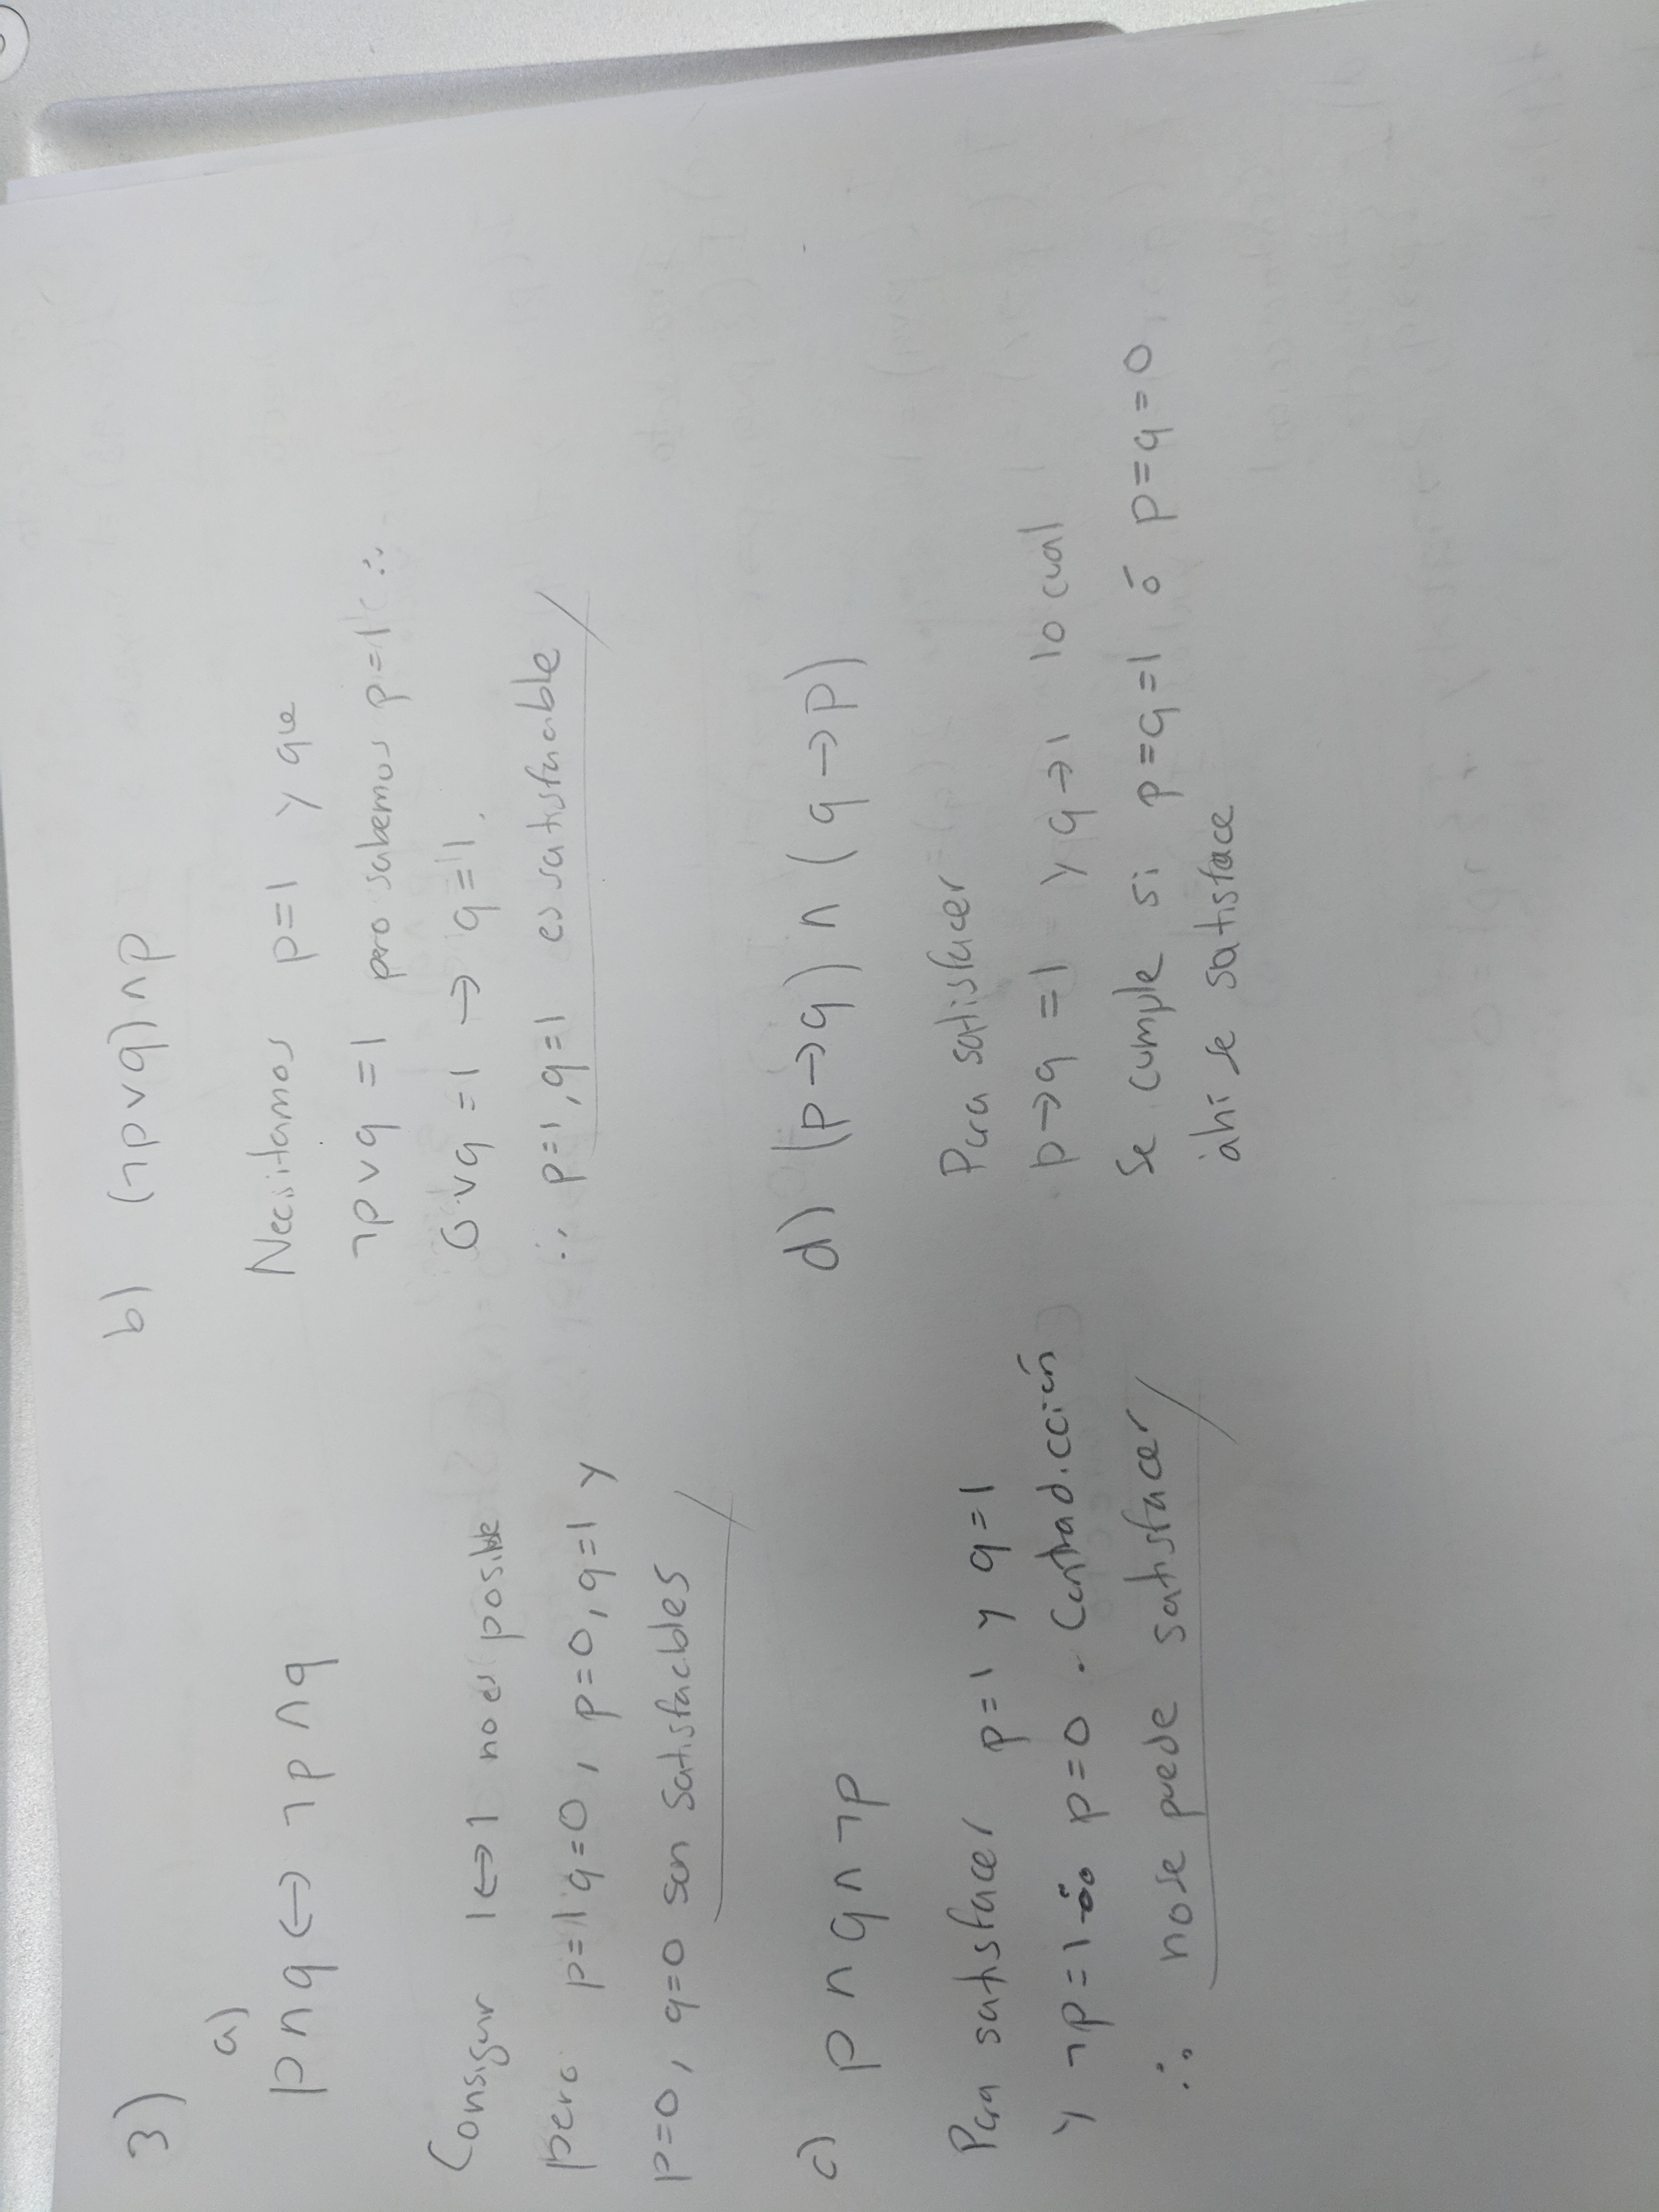 3)
a)
p ∧ q ↔ ¬p ∧ q
Consigur 1↔1 no es posible
pero p=1 q=0, p=0, q=1 y
p=0, q=0 son satisfacbles
b) (¬p ∨ q) ∧ p
Necesitamos p=1 y que
¬p ∨ q = 1 pero sabemos p=1 ∴
0 ∨ q = 1 → q=1.
∴ p=1, q=1 es satisfacable
c) p ∧ q ∧ ¬p
Para satisfacer p=1 y q=1
y ¬p=1 ∴ p=0. Contradicción
∴ no se puede satisfacer
d) (p→q) ∧ (q→p)
Para satisfacer
p→q =1 y q→1 lo cual
se cumple si p=q=1 ó p=q=0,
ahí se satisface